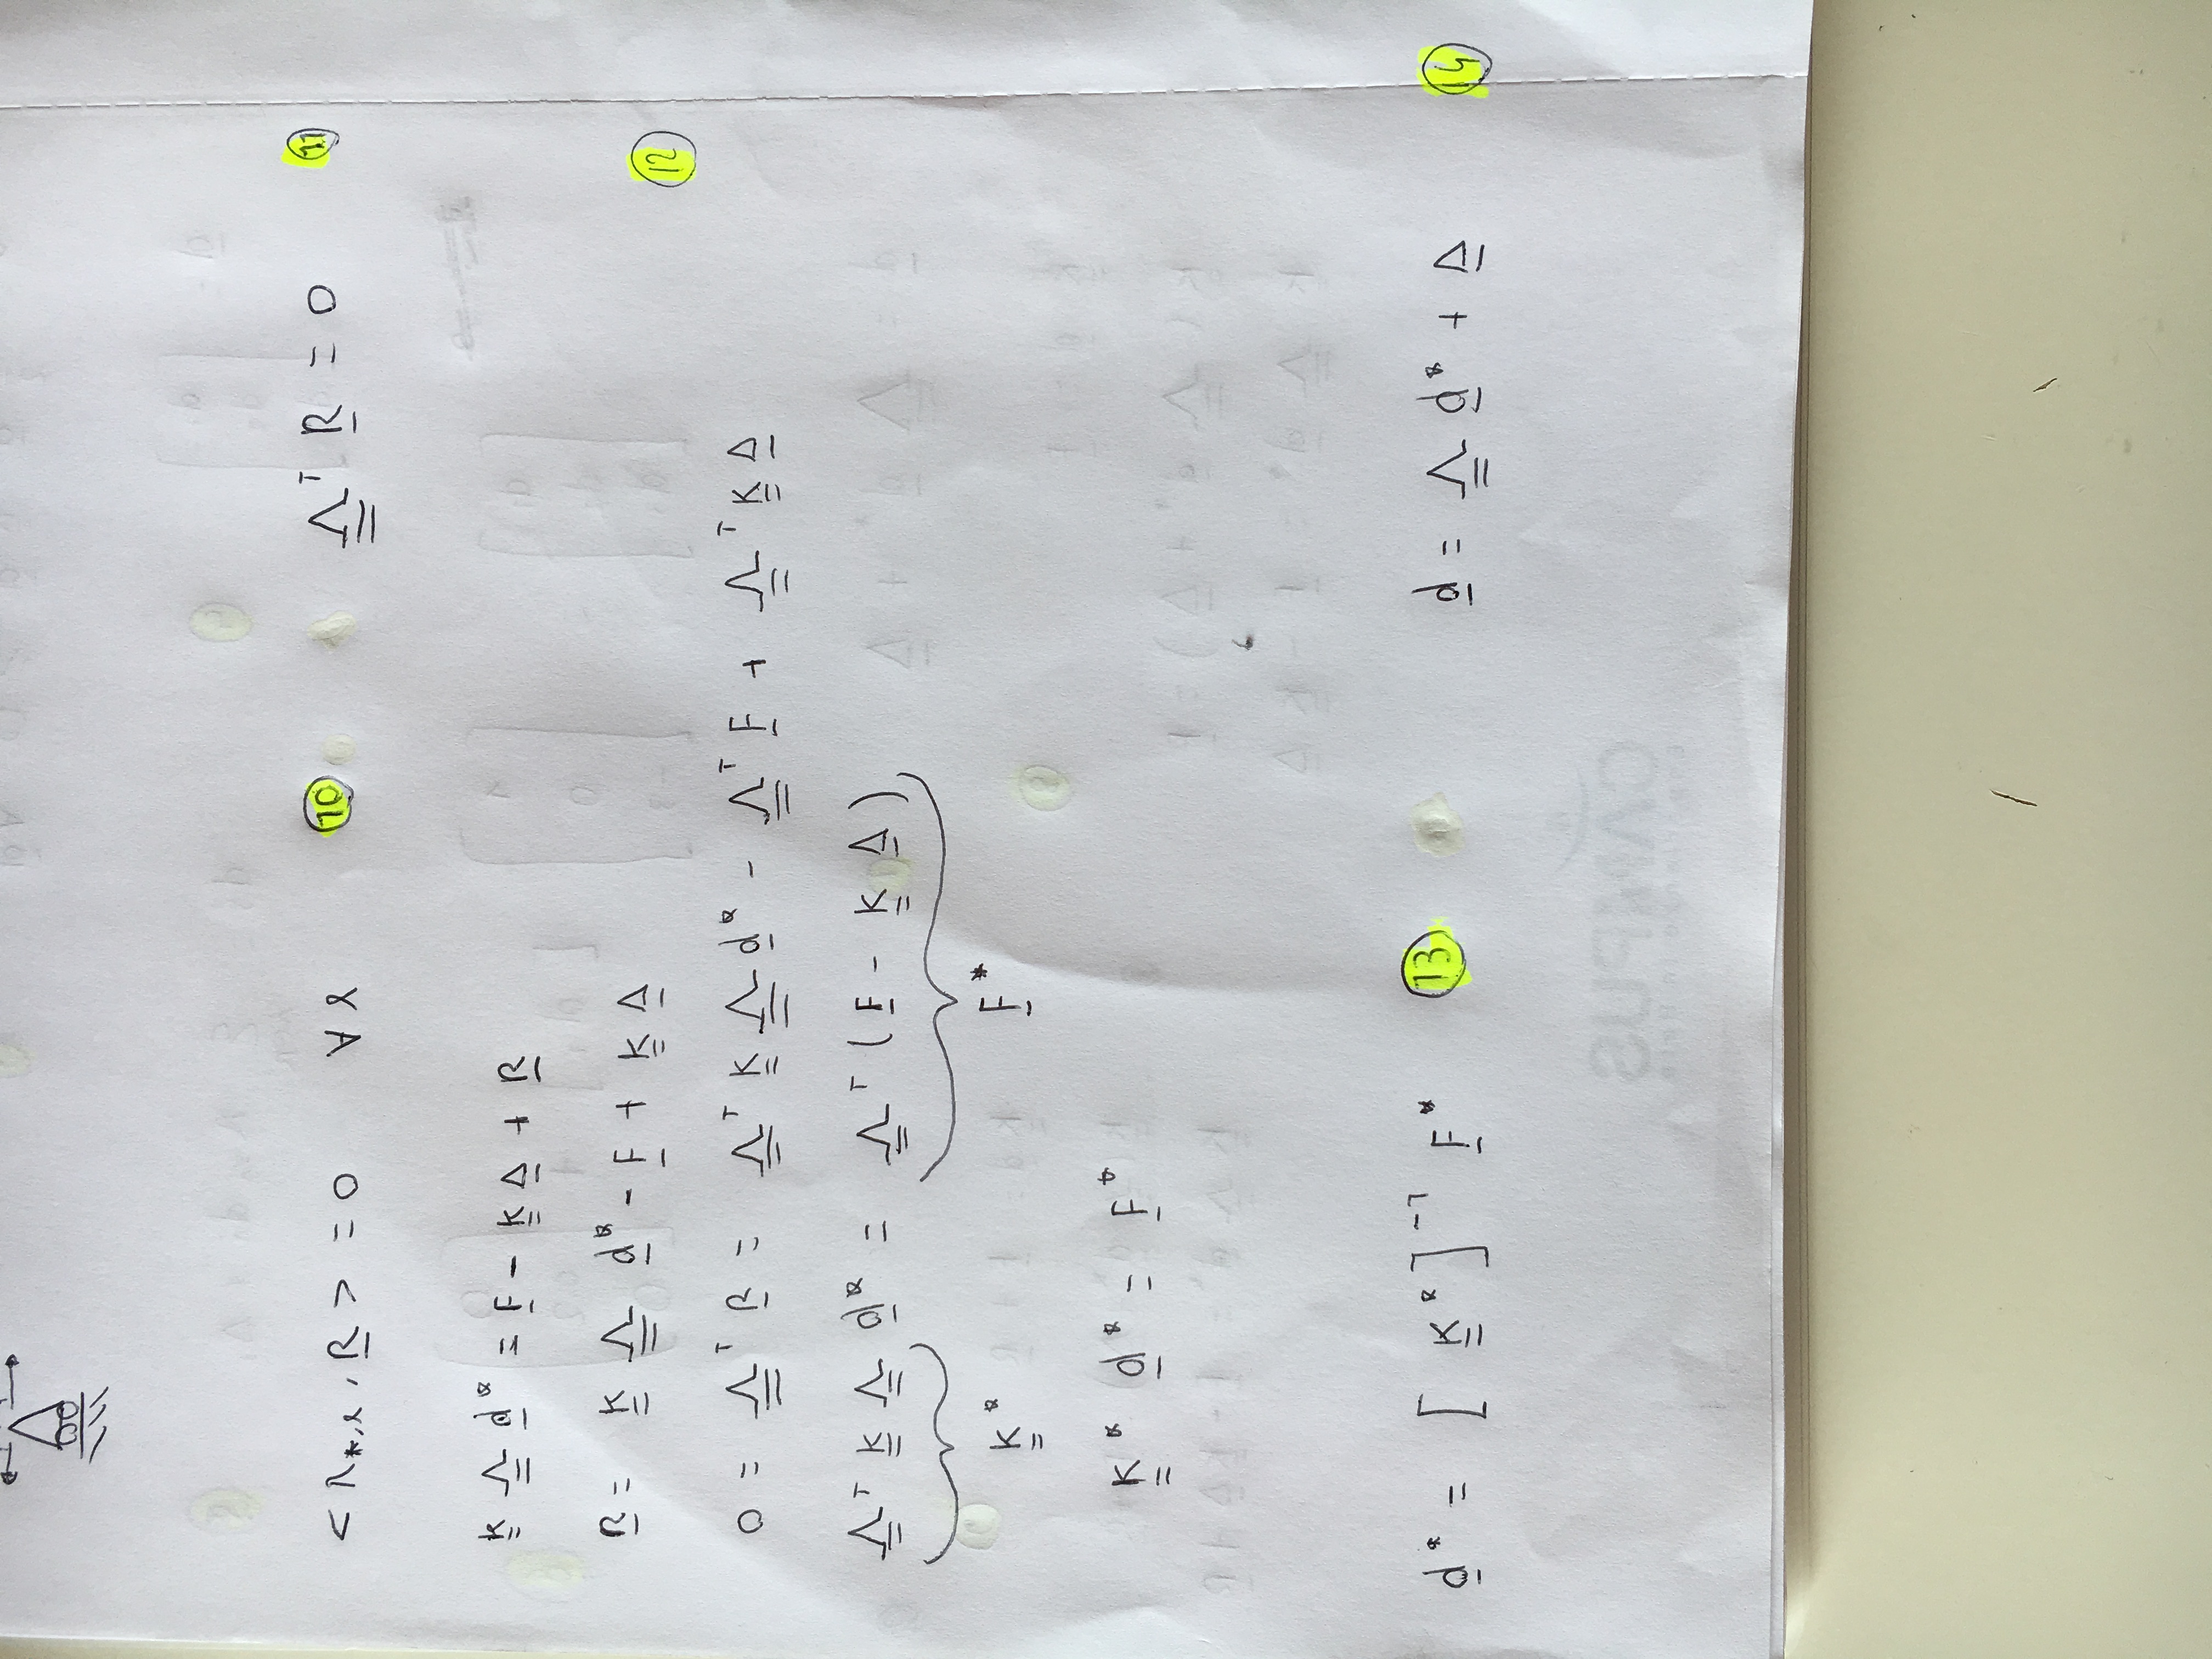 < Λ*,λ , R > = 0 ∀ λ ⑩ Λ̳ᵀ R̲ = 0 ⑪
K̳ Λ̳ d̲* = F̲ - K̳ Δ̲ + R̲
R̲ = K̳ Λ̳ d̲* - F̲ + K̳ Δ̲ ⑫
0 = Λ̳ᵀ R̲ = Λ̳ᵀ K̳ Λ̳ d̲* - Λ̳ᵀ F̲ + Λ̳ᵀ K̳ Δ̲
Λ̳ᵀ K̳ Λ̳ d̲* = Λ̳ᵀ ( F̲ - K̳ Δ̲ )
K̳* F̲*
K̳* d̲* = F̲*
d̲* = [ K̳* ]⁻¹ F̲* ⑬ d̲ = Λ̳ d̲* + Δ̲ ⑭